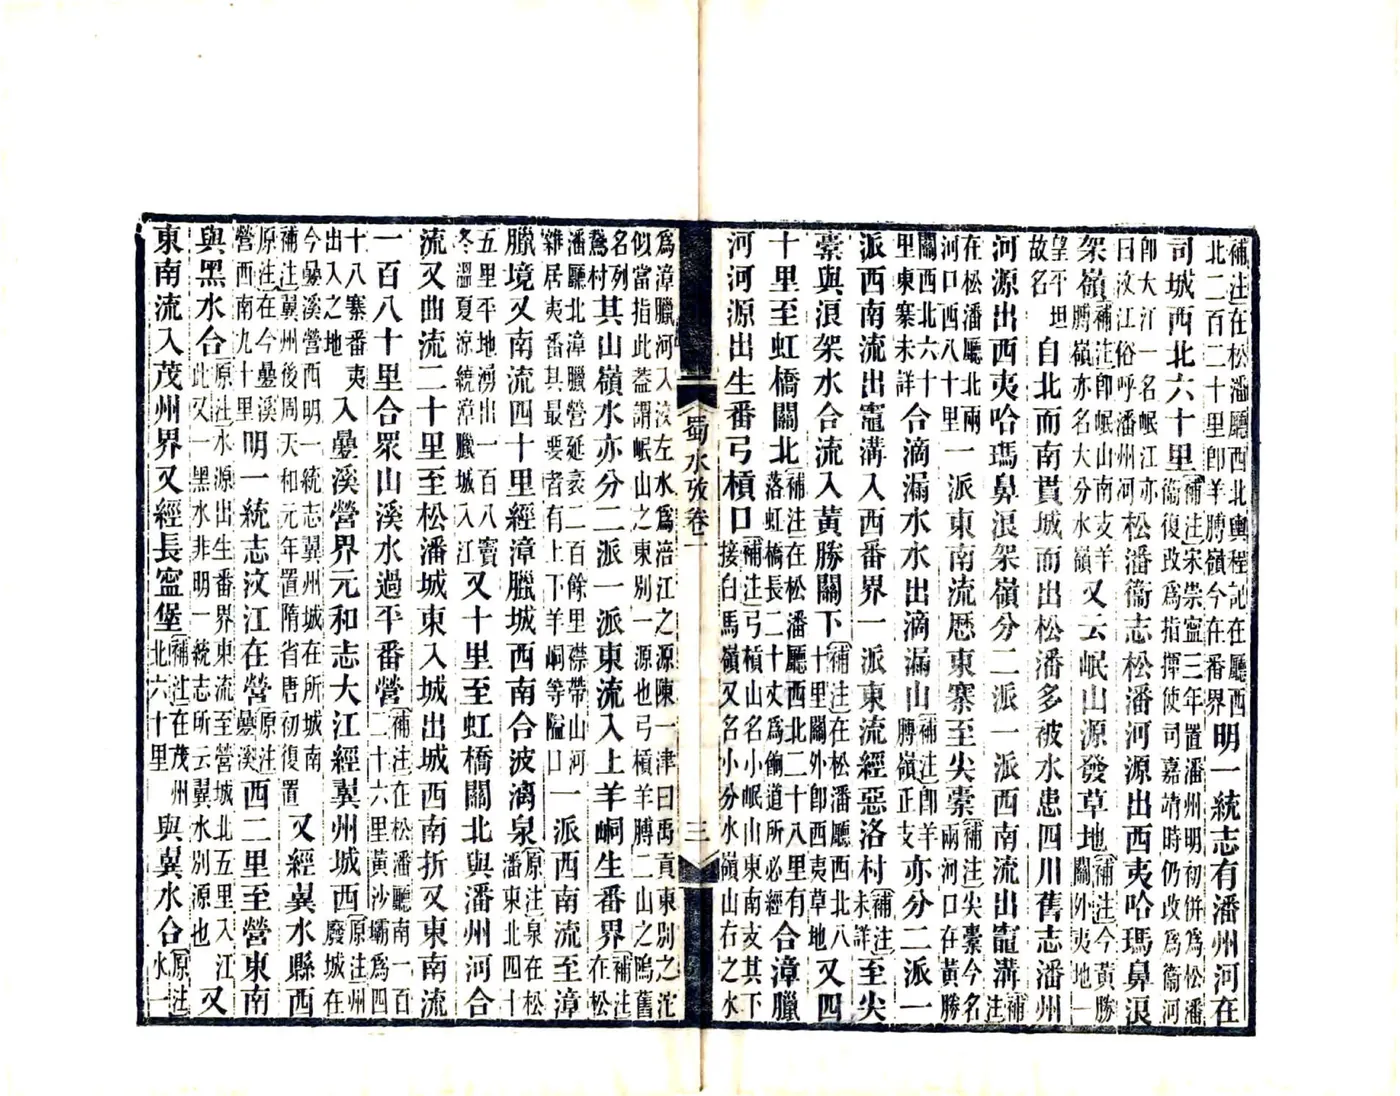 補注在松潘廳西北輿程記在廳西
北二百二十里卽羊膊嶺今在番界
明一統志有潘州河在
司城西北六十里
補注宋崇寧三年置潘州明初併爲松潘
衞復改爲指揮使司嘉靖時仍改爲衞河
卽大江一名岷江亦
曰汶江俗呼潘州河
松潘衞志松潘河源出西夷哈瑪鼻浪
架嶺
補注卽岷山南支羊
膊嶺亦名大分水嶺
又云岷山源發草地
補注今黃勝
關外夷地一
望平坦
故名
自北而南貫城而出松潘多被水患四川舊志潘州
河源出西夷哈瑪鼻浪架嶺分二派一派西南流出竈溝
補
注
在松潘廳北兩
河口西八十里
一派東南流厯東寨至尖橐
補注尖橐今名
兩河口在黃勝
關西北六十
里東寨未詳
合滴漏水水出滴漏山
補注卽羊
膊嶺正支
亦分二派一
派西南流出竈溝入西番界一派東流經惡洛村
補注
未詳
至尖
橐與浪架水合流入黃勝關下
補注在松潘廳西北八
十里關外卽西夷草地
又四
十里至虹橋關北
補注在松潘廳西北二十八里有
落虹橋長二十丈爲偷道所必經
合漳臘
河河源出生番弓槓口
補注弓槓山名小岷山東南支其下
接白馬嶺又名小分水嶺山右之水
蜀水攷卷一
三
爲漳臘河入汶左水爲涪江之源陳一津曰禹貢東別之沱
似當指此葢謂岷山之東別一源也弓槓羊膊二山之陽舊
名列
鶩村
其山嶺水亦分二派一派東流入上羊峒生番界
補注
在松
潘廳北漳臘營延袤二百餘里襟帶山河
雜居夷番其最要者有上下羊峒等隘口
一派西南流至漳
臘境又南流四十里經漳臘城西南合波漓泉
原注泉在松
潘東北四十
五里平地湧出一百八竇
冬溫夏涼統漳臘城入江
又十里至虹橋關北與潘州河合
流又曲流二十里至松潘城東入城出城西南折又東南流
一百八十里合眾山溪水過平番營
補注在松潘廳南一百
二十六里黃沙壩爲四
十八寨番夷
出入之地
入疊溪營界元和志大江經翼州城西
原注州
廢城在
今疊溪營西明一統志翼州城在所城南
補注翼州後周天和元年置隋省唐初復置
又經翼水縣西
原注在今疊溪
營西南九十里
明一統志汶江在營
原注
疊溪
西二里至營東南
與黑水合
原注水源出生番界東流至營城北五里入江
此又一黑水非明一統志所云翼水別源也
又
東南流入茂州界又經長寧堡
補注在茂州
北六十里
與翼水合
原注
水一